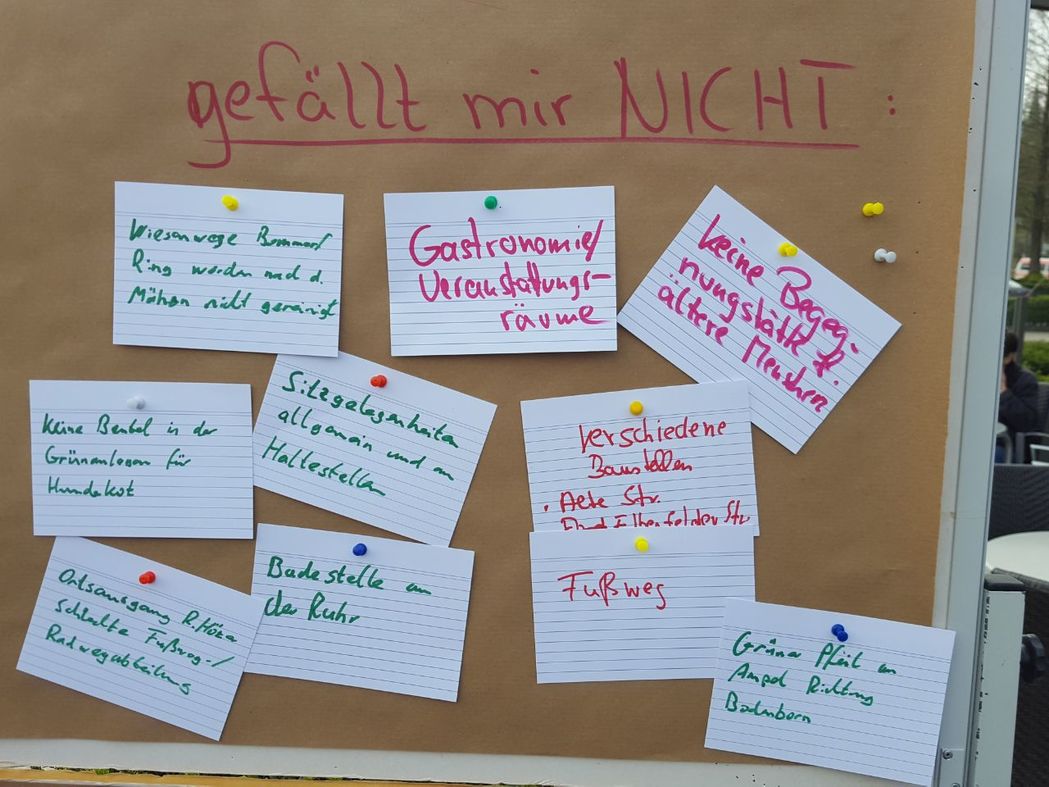 gefällt mir NICHT :
Wiesenwege Bommer
Ring werden nach d.
Mähen nicht gereinigt
Gastronomie/
Veranstaltungs-
räume
keine Begeg-
nungstätte f.
ältere Menschen
Keine Beutel in der
Grünanlagen für
Hundekot
Sitzgelegenheiten
allgemein und an
Haltestellen
Verschiedene
Baustellen
Elberfelder Str.
Ortsausgang
schlechte Fußweg-/
Radwegabteilung
Badestelle an
der Ruhr
Fußweg
Grüner Pfeil an
Ampel Richtung
Bodenborn